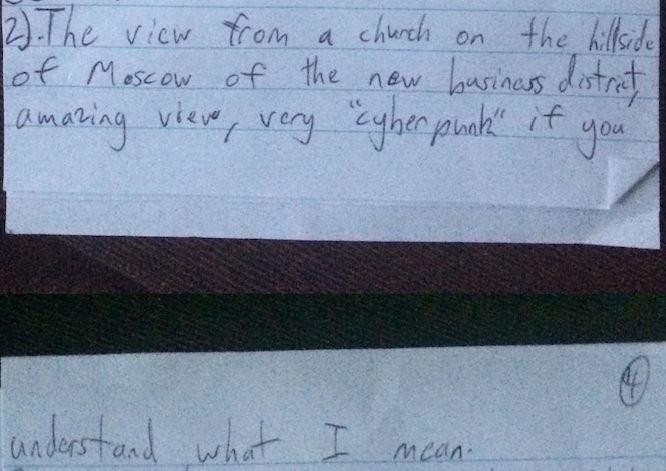 2). The view from a church on the hillside
of Moscow of the new business district,
amazing view, very "cyberpunk" if you
4
understand what I mean.